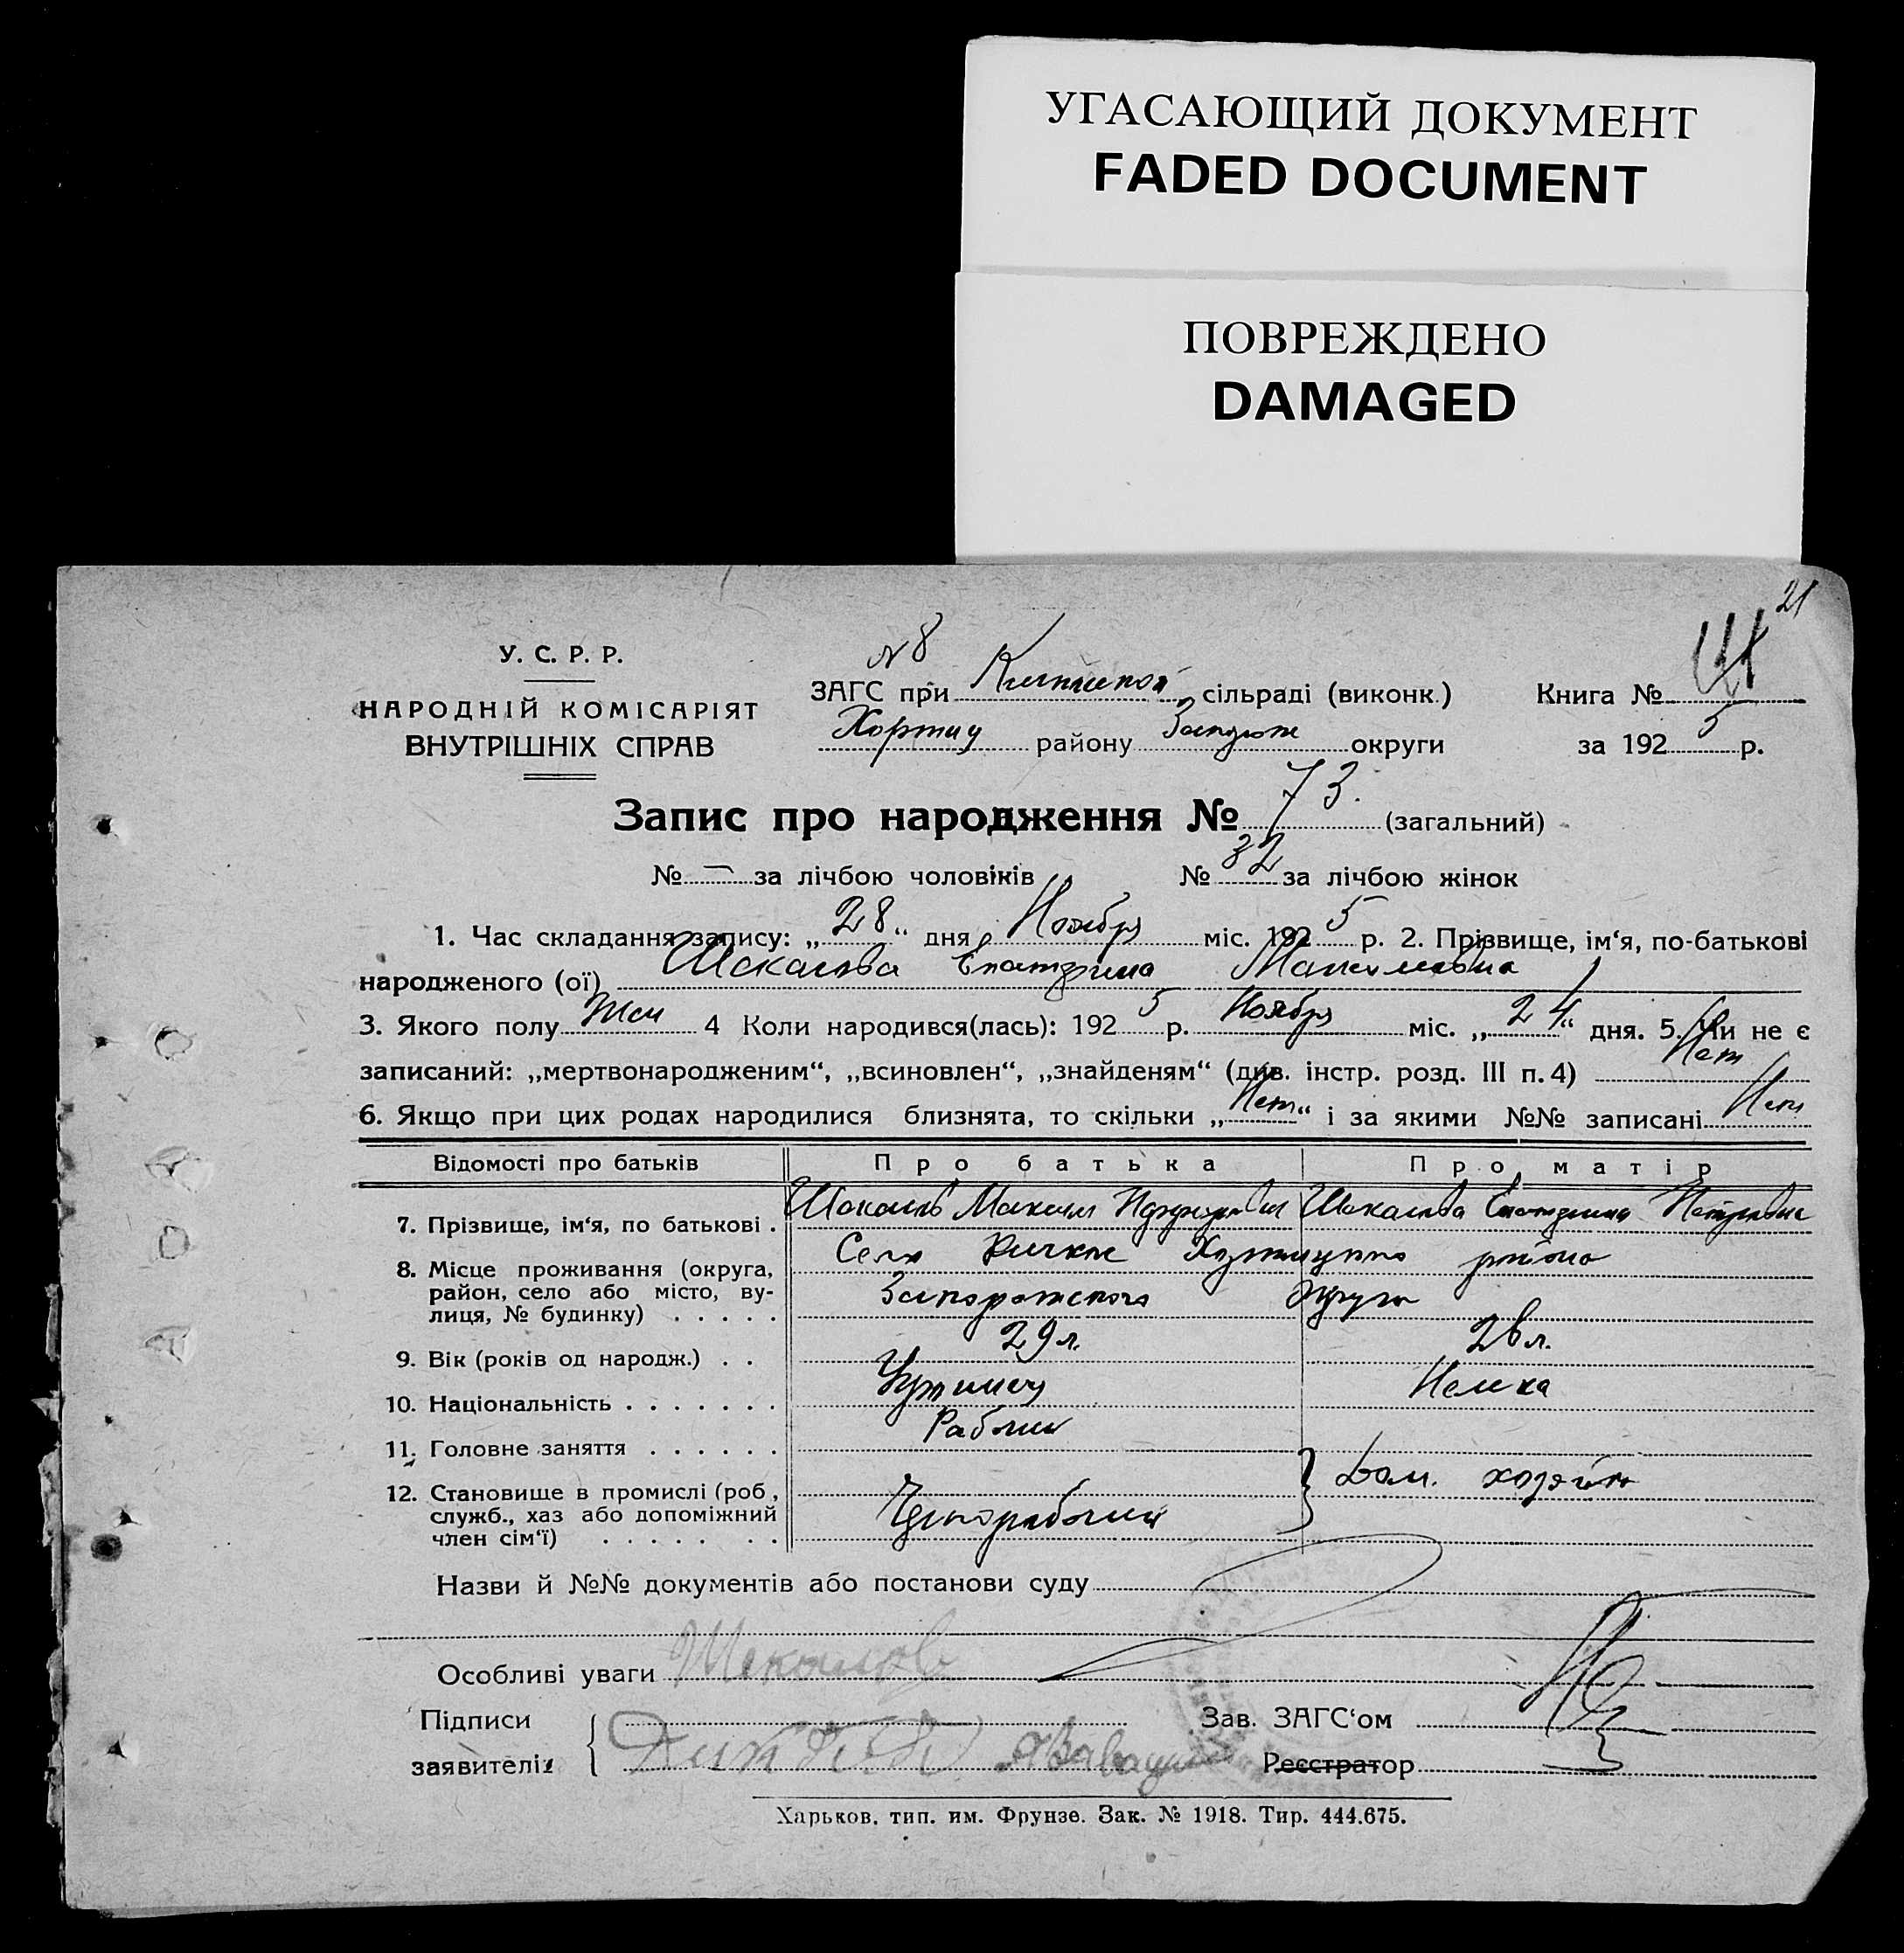 УГАСАЮЩИЙ ДОКУМЕНТ
FADED DOCUMENT
ПОВРЕЖДЕНО
DAMAGED
21
У. С. Р. Р.
НАРОДНІЙ КОМІСАРІЯТ
ВНУТРІШНІХ СПРАВ
№ 8
ЗАГС при сільраді (виконк.)
Хортиц району Запорож округи
Книга №
за 1925 р.
Запис про народження № 73. (загальний)
№ — за лічбою чоловіків № 32 за лічбою жінок
1. Час складання запису: „28“ дня Ноября міс. 1925 р. 2. Прізвище, ім‘я, по-батькові
народженого (ої) Шакалова Екатерина Максимовна
3. Якого полу Жен 4 Коли народився(лась): 1925 р. Ноября міс. „24“ дня. 5. Чи не є
записаний: „мертвонародженим“, „всиновлен“, „знайденям“ (див. інстр. розд. III п. 4) Нет
6. Якщо при цих родах народилися близнята, то скільки „Нет“ і за якими №№ записані Нет
Відомості про батьків Про батька Про матір
7. Прізвище, ім‘я, по батькові . Шакалов Максим Шакалова Екатерина Петровна
8. Місце проживання (округа, район, село або місто, вулиця, № будинку) . . . . . Село Кичкас Хортицкого района
Запорожского Округа
9. Вік (років од народж.) . . 29 л. 26 л.
10. Національність . . . . . . . Украинец Немка
11. Головне заняття . . . . . . Рабочий
12. Становище в промислі (роб., служб., хаз або допоміжний член сім‘ї) . . . . . . . Чернорабочий Дом. хозяйка
Назви й №№ документів або постанови суду
Особливі уваги Шакалов
Підписи
заявителів
Зав. ЗАГС‘ом
Реєстратор
Харьков. тип. им. Фрунзе. Зак. № 1918. Тир. 444.675.